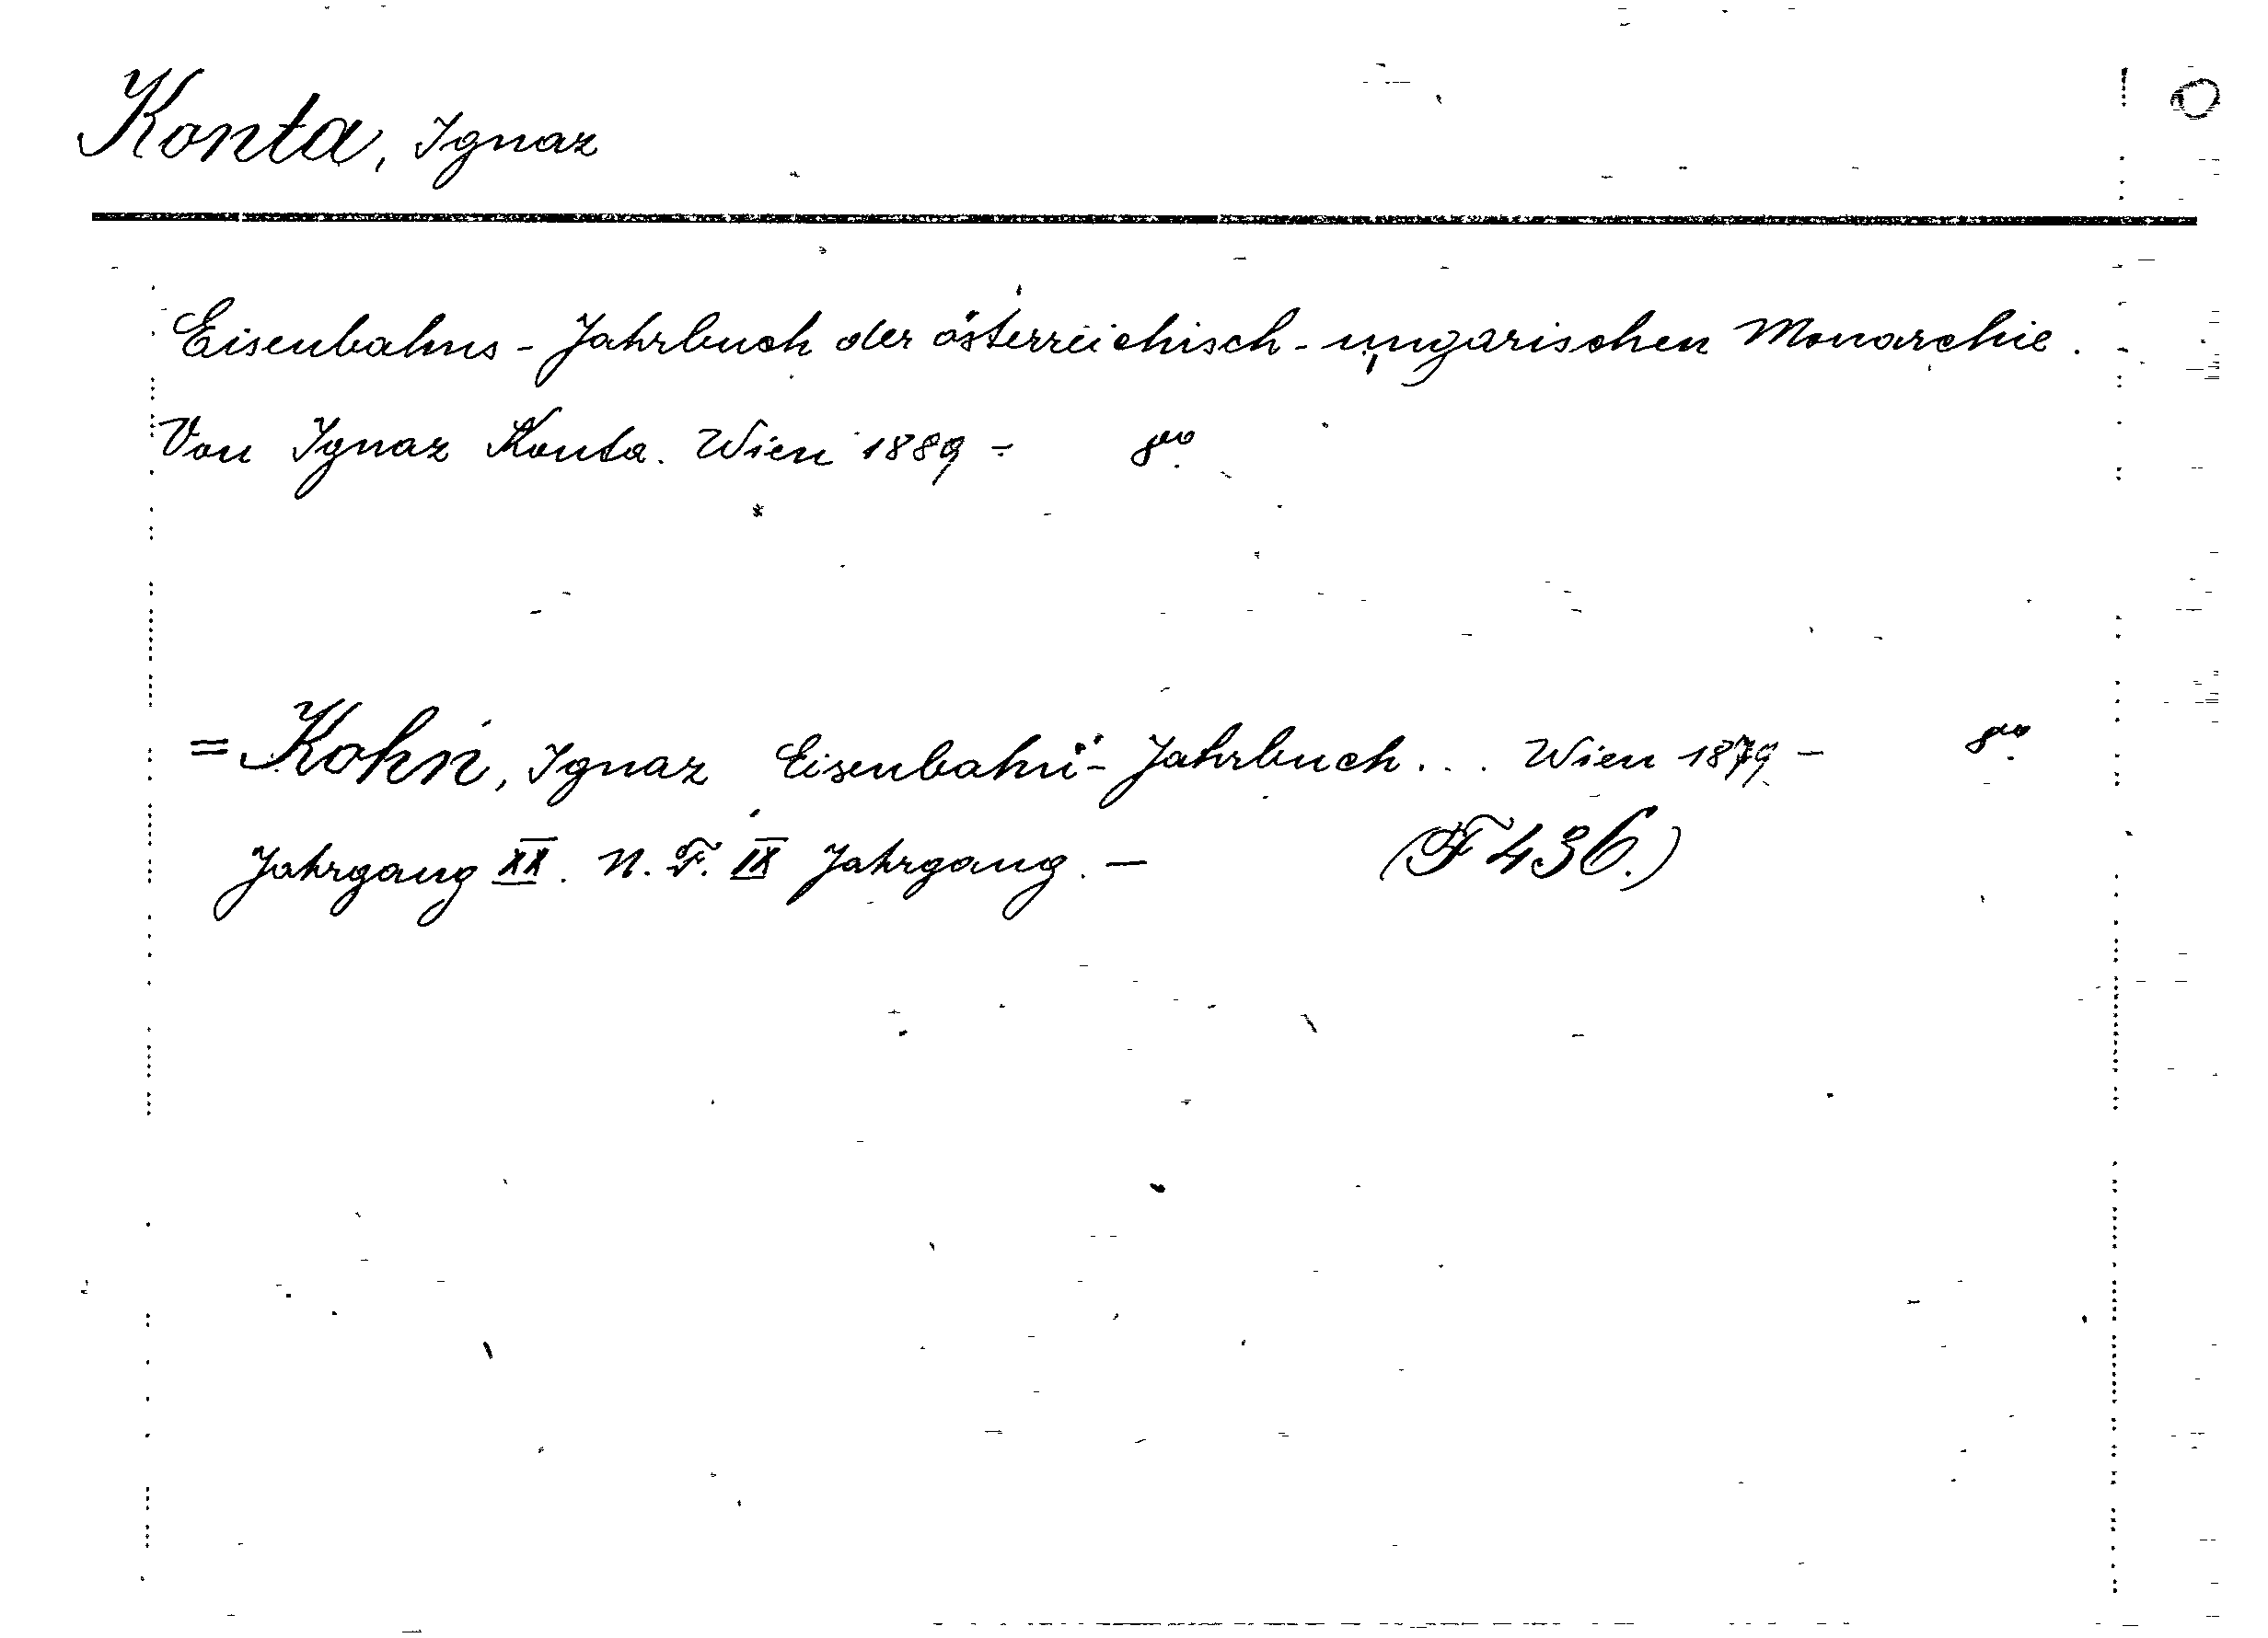 Konta, Ignaz
Eisenbahns-Jahrbuch der österreichisch-ungarischen Monarchie.
Von Ignaz Konta. Wien 1889 - 8vo.
= Kohn, Ignaz Eisenbahn-Jahrbuch... Wien 1879 - 8vo.
Jahrgang XX. N. F. IX Jahrgang. - (F 436.)